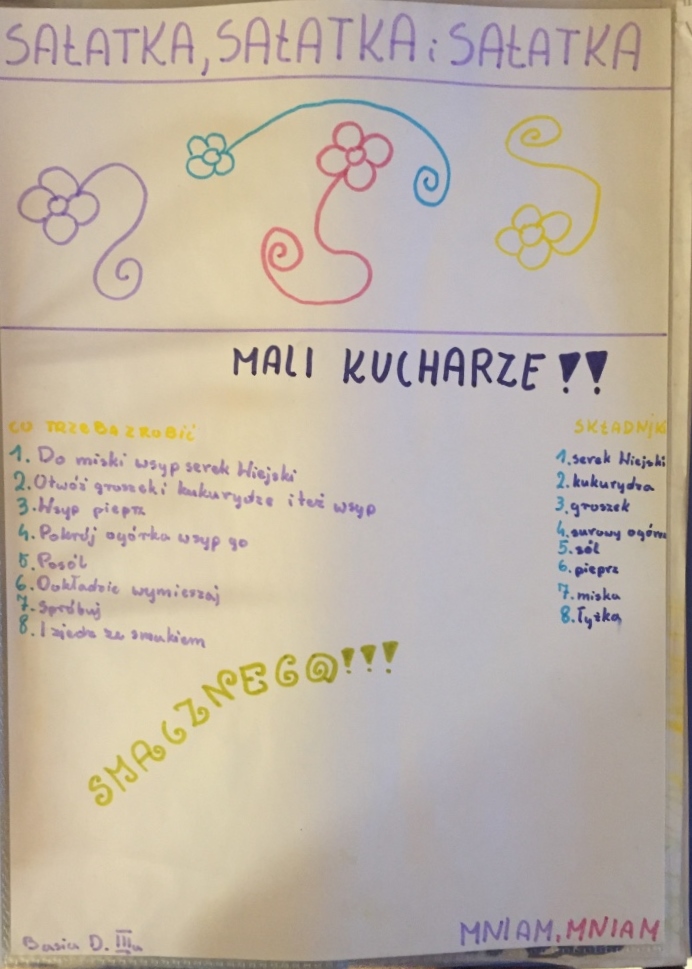 SAŁATKA, SAŁATKA i SAŁATKA
MALI KUCHARZE!!
CO TRZEBA ZROBIĆ
1. Do miski wsyp serek Wiejski
2. Otwóż groszek i kukurydze i też wsyp
3. Wsyp pieprz
4. Pokrój ogórka wsyp go
5. Posól
6. Dokładnie wymieszaj
7. Spróbuj
8. I zjedz ze smakiem
SKŁADNIK
1. serek Wiejski
2. kukurydza
3. groszek
4. surowy ogóre
5. sól
6. pieprz
7. miska
8. Łyżka
SMACZNEGO!!!
MNIAM, MNIAM
Basia D. IIIa